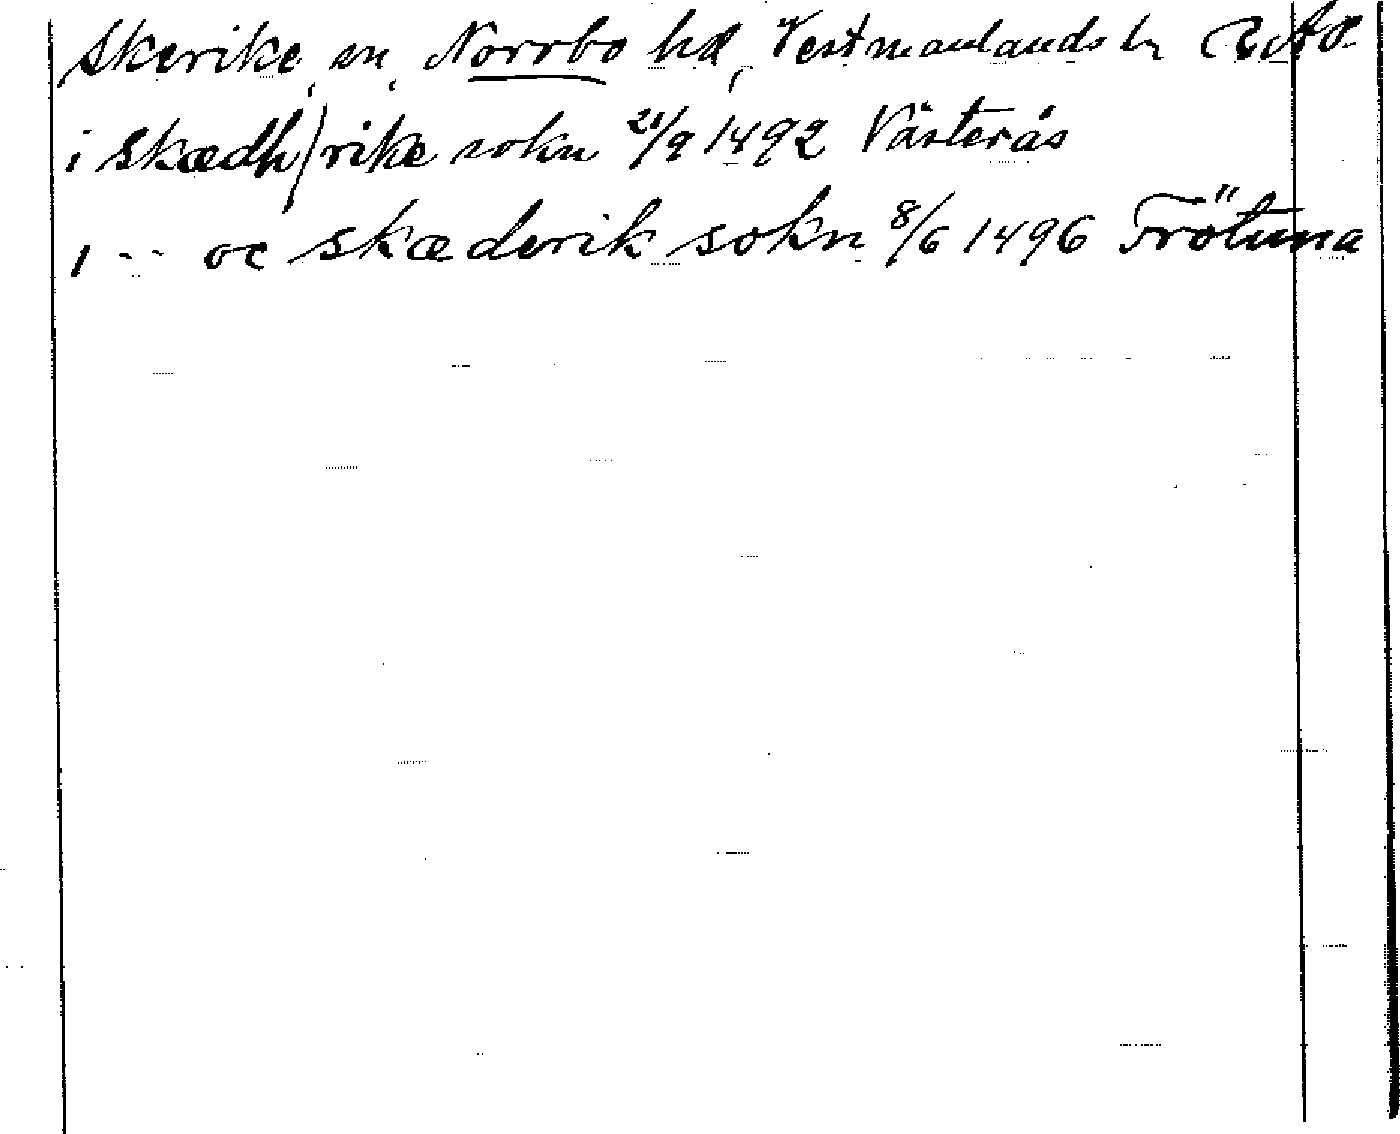 Skerike, sn, Norrbo hd, Vestmanlands ln RAP.
i skædh/rike sokn 21/9 1492 Västerås
i -- oc skæderik sokn 8/6 1496 Frötuna